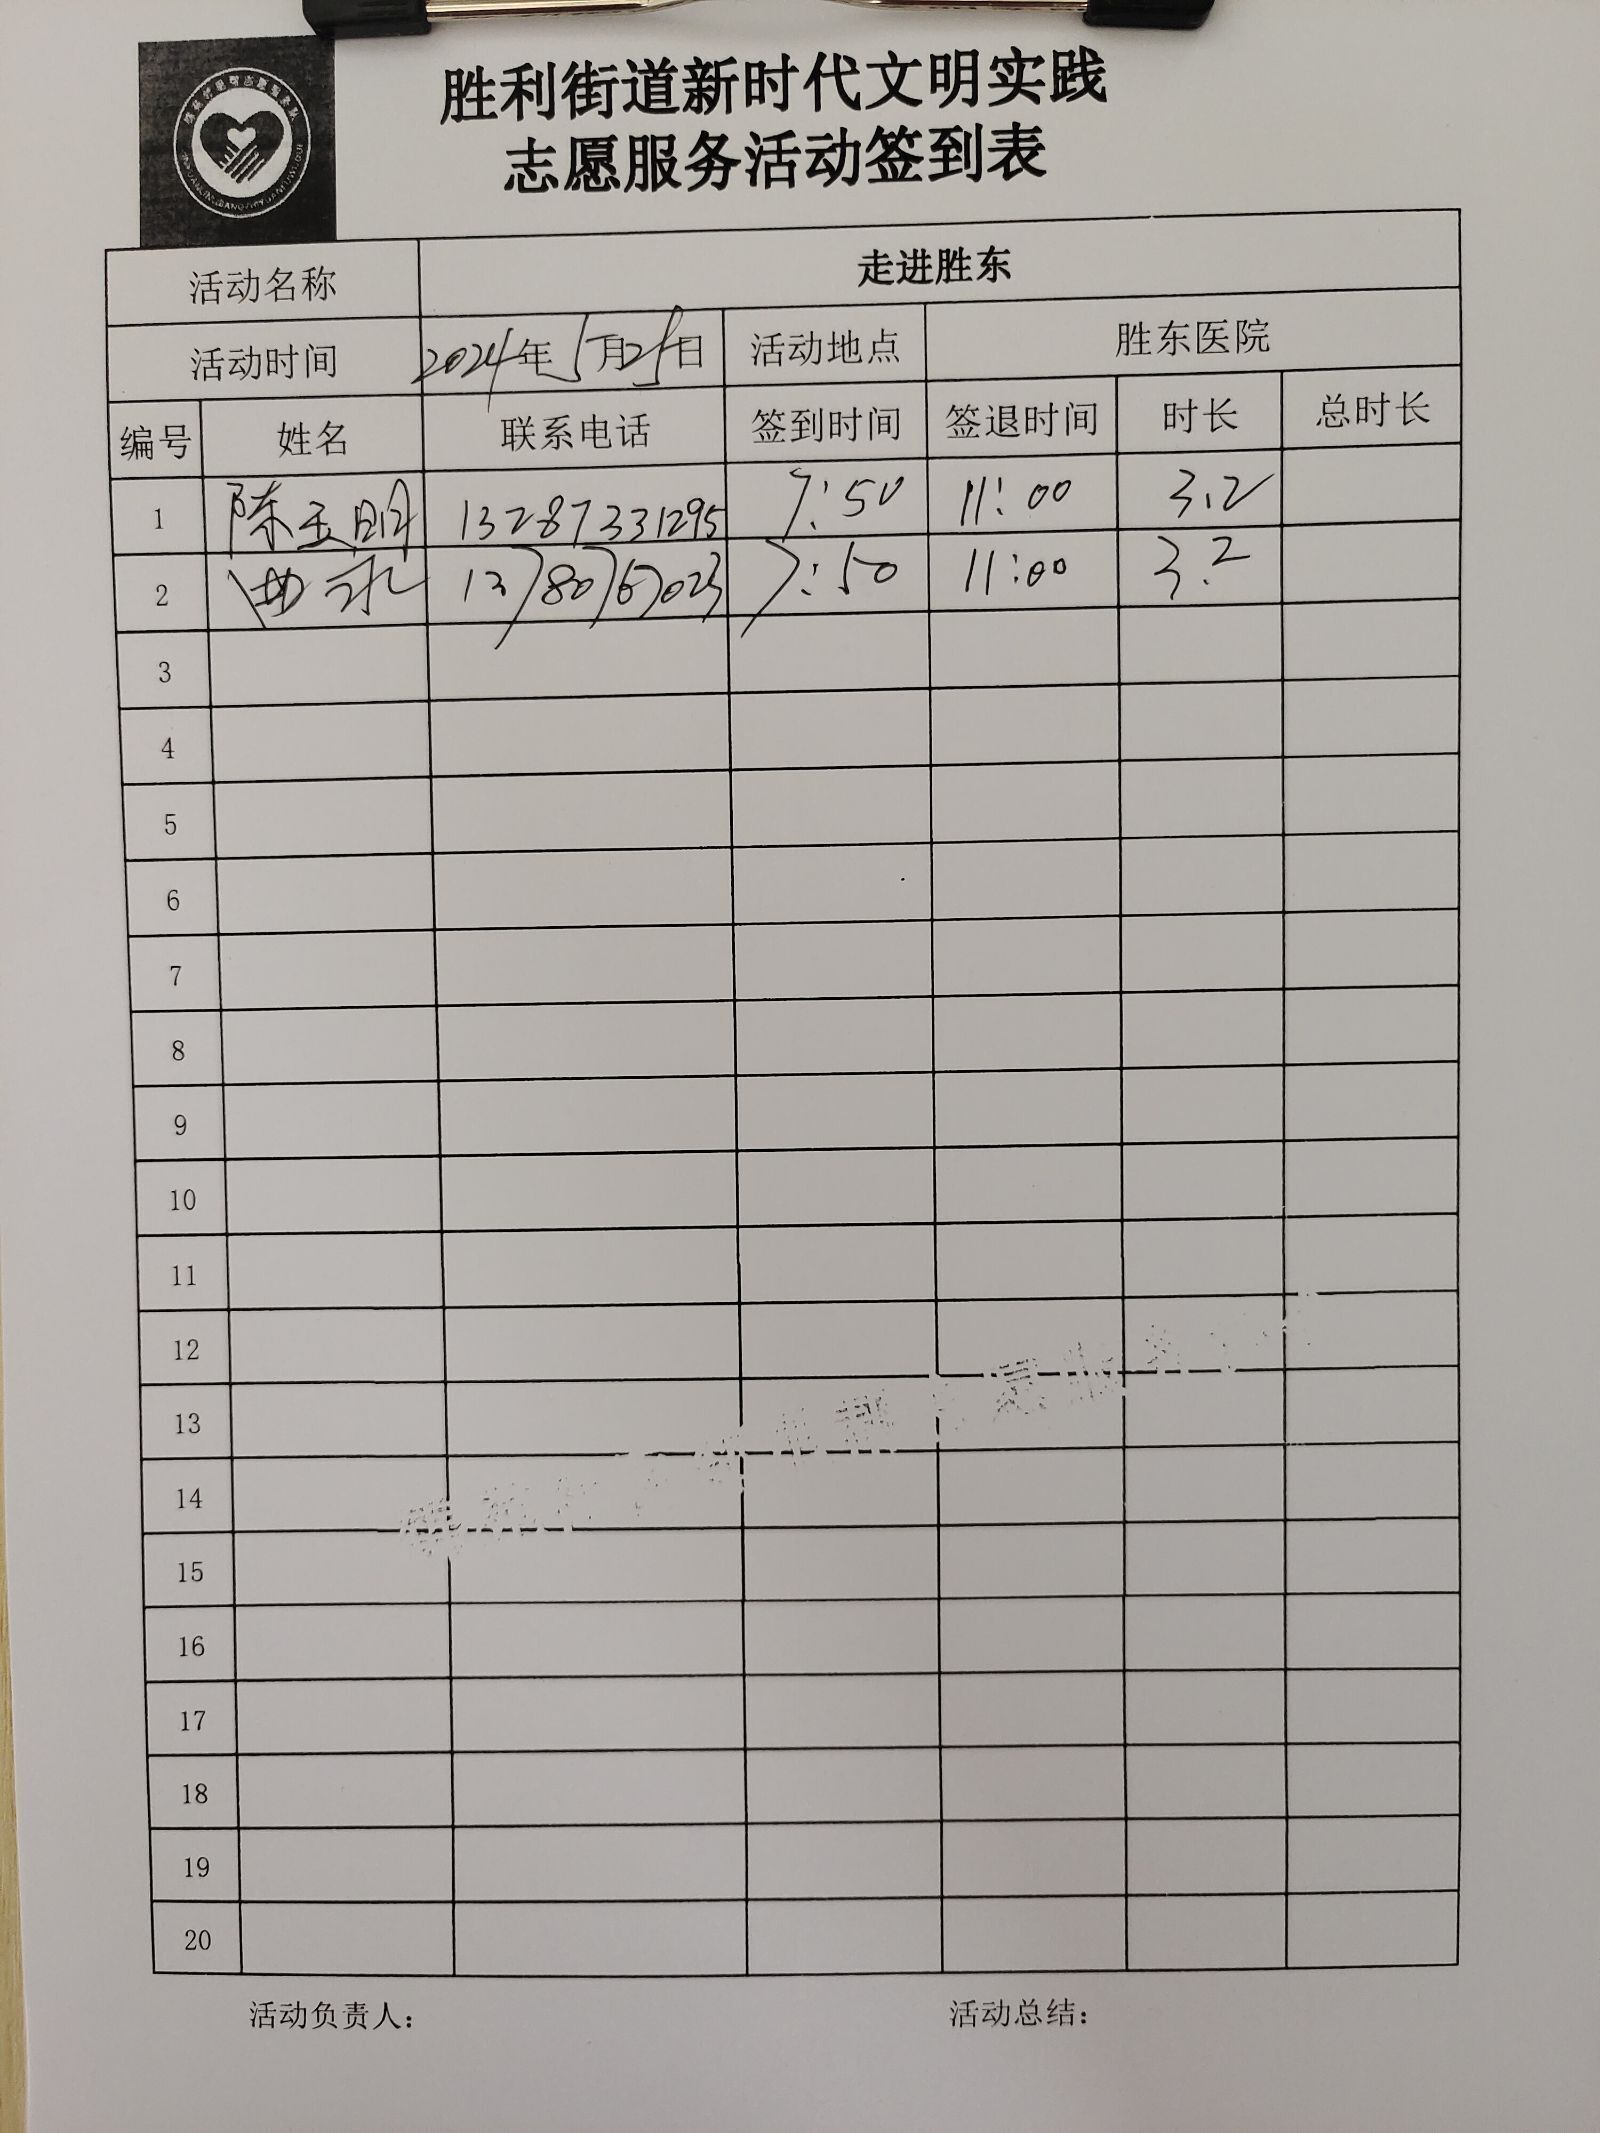 胜利街道新时代文明实践
志愿服务活动签到表
活动名称 走进胜东
活动时间 2024年5月25日 活动地点 胜东医院
编号 姓名 联系电话 签到时间 签退时间 时长 总时长
1 陈玉明 13287331295 7:50 11:00 3.2
2 13780767023 7:50 11:00 3.2
3
4
5
6
7
8
9
10
11
12
13
14
15
16
17
18
19
20
活动负责人： 活动总结：